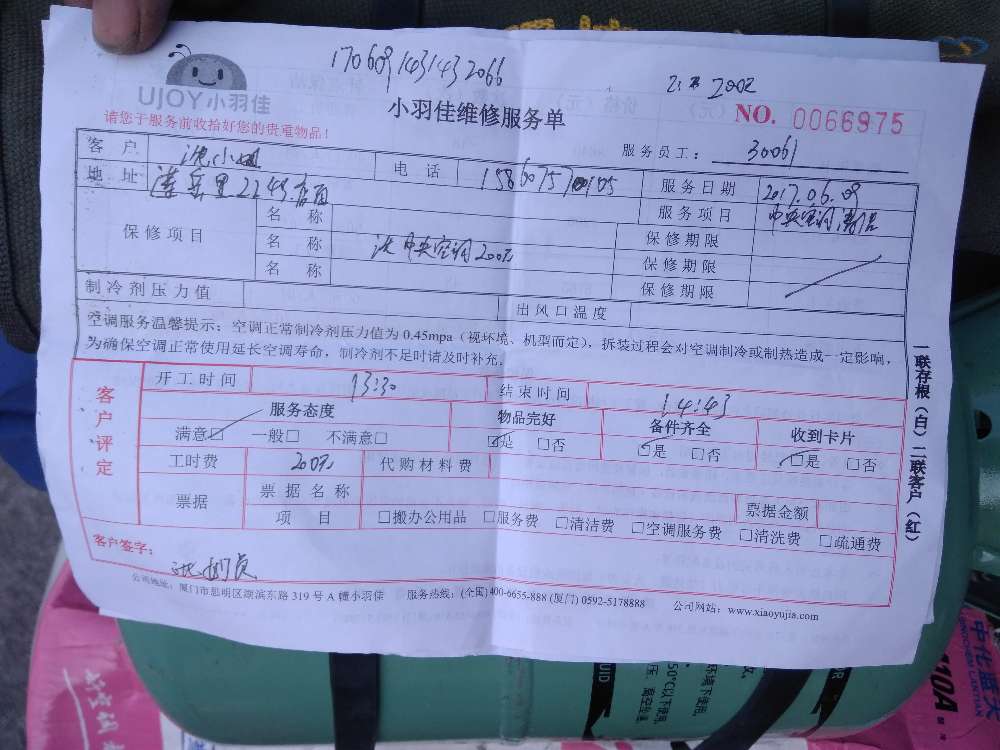 170609143143 2066
2002
UJOY小羽佳
小羽佳维修服务单
NO. 0066975
请您于服务前收拾好您的贵重物品！
服务员工： 30061
客户 沈小姐 电话 服务日期 2017.06.09
地址 服务项目 中央空调清洁
保修项目 名称 保修期限
名称 洗中央空调200元 保修期限
名称 保修期限
制冷剂压力值 出风口温度
空调服务温馨提示：空调正常制冷剂压力值为0.45mpa（视环境、机型而定），拆装过程会对空调制冷或制热造成一定影响，
为确保空调正常使用延长空调寿命，制冷剂不足时请及时补充。
客户评定
开工时间 13:30 结束时间 14:43
服务态度 物品完好 备件齐全 收到卡片
满意□ 一般□ 不满意□ □是 □否 □是 □否 □是 □否
工时费 200元 代购材料费
票据 票据名称 票据金额
项目 □搬办公用品 □服务费 □清洁费 □空调服务费 □清洗费 □疏通费
客户签字：
公司地址：厦门市思明区湖滨东路319号A幢小羽佳 服务热线：(全国)400-6655-888 (厦门) 0592-5178888 公司网站：www.xiaoyujia.com
一联存根（白）二联客户（红）
中化蓝天